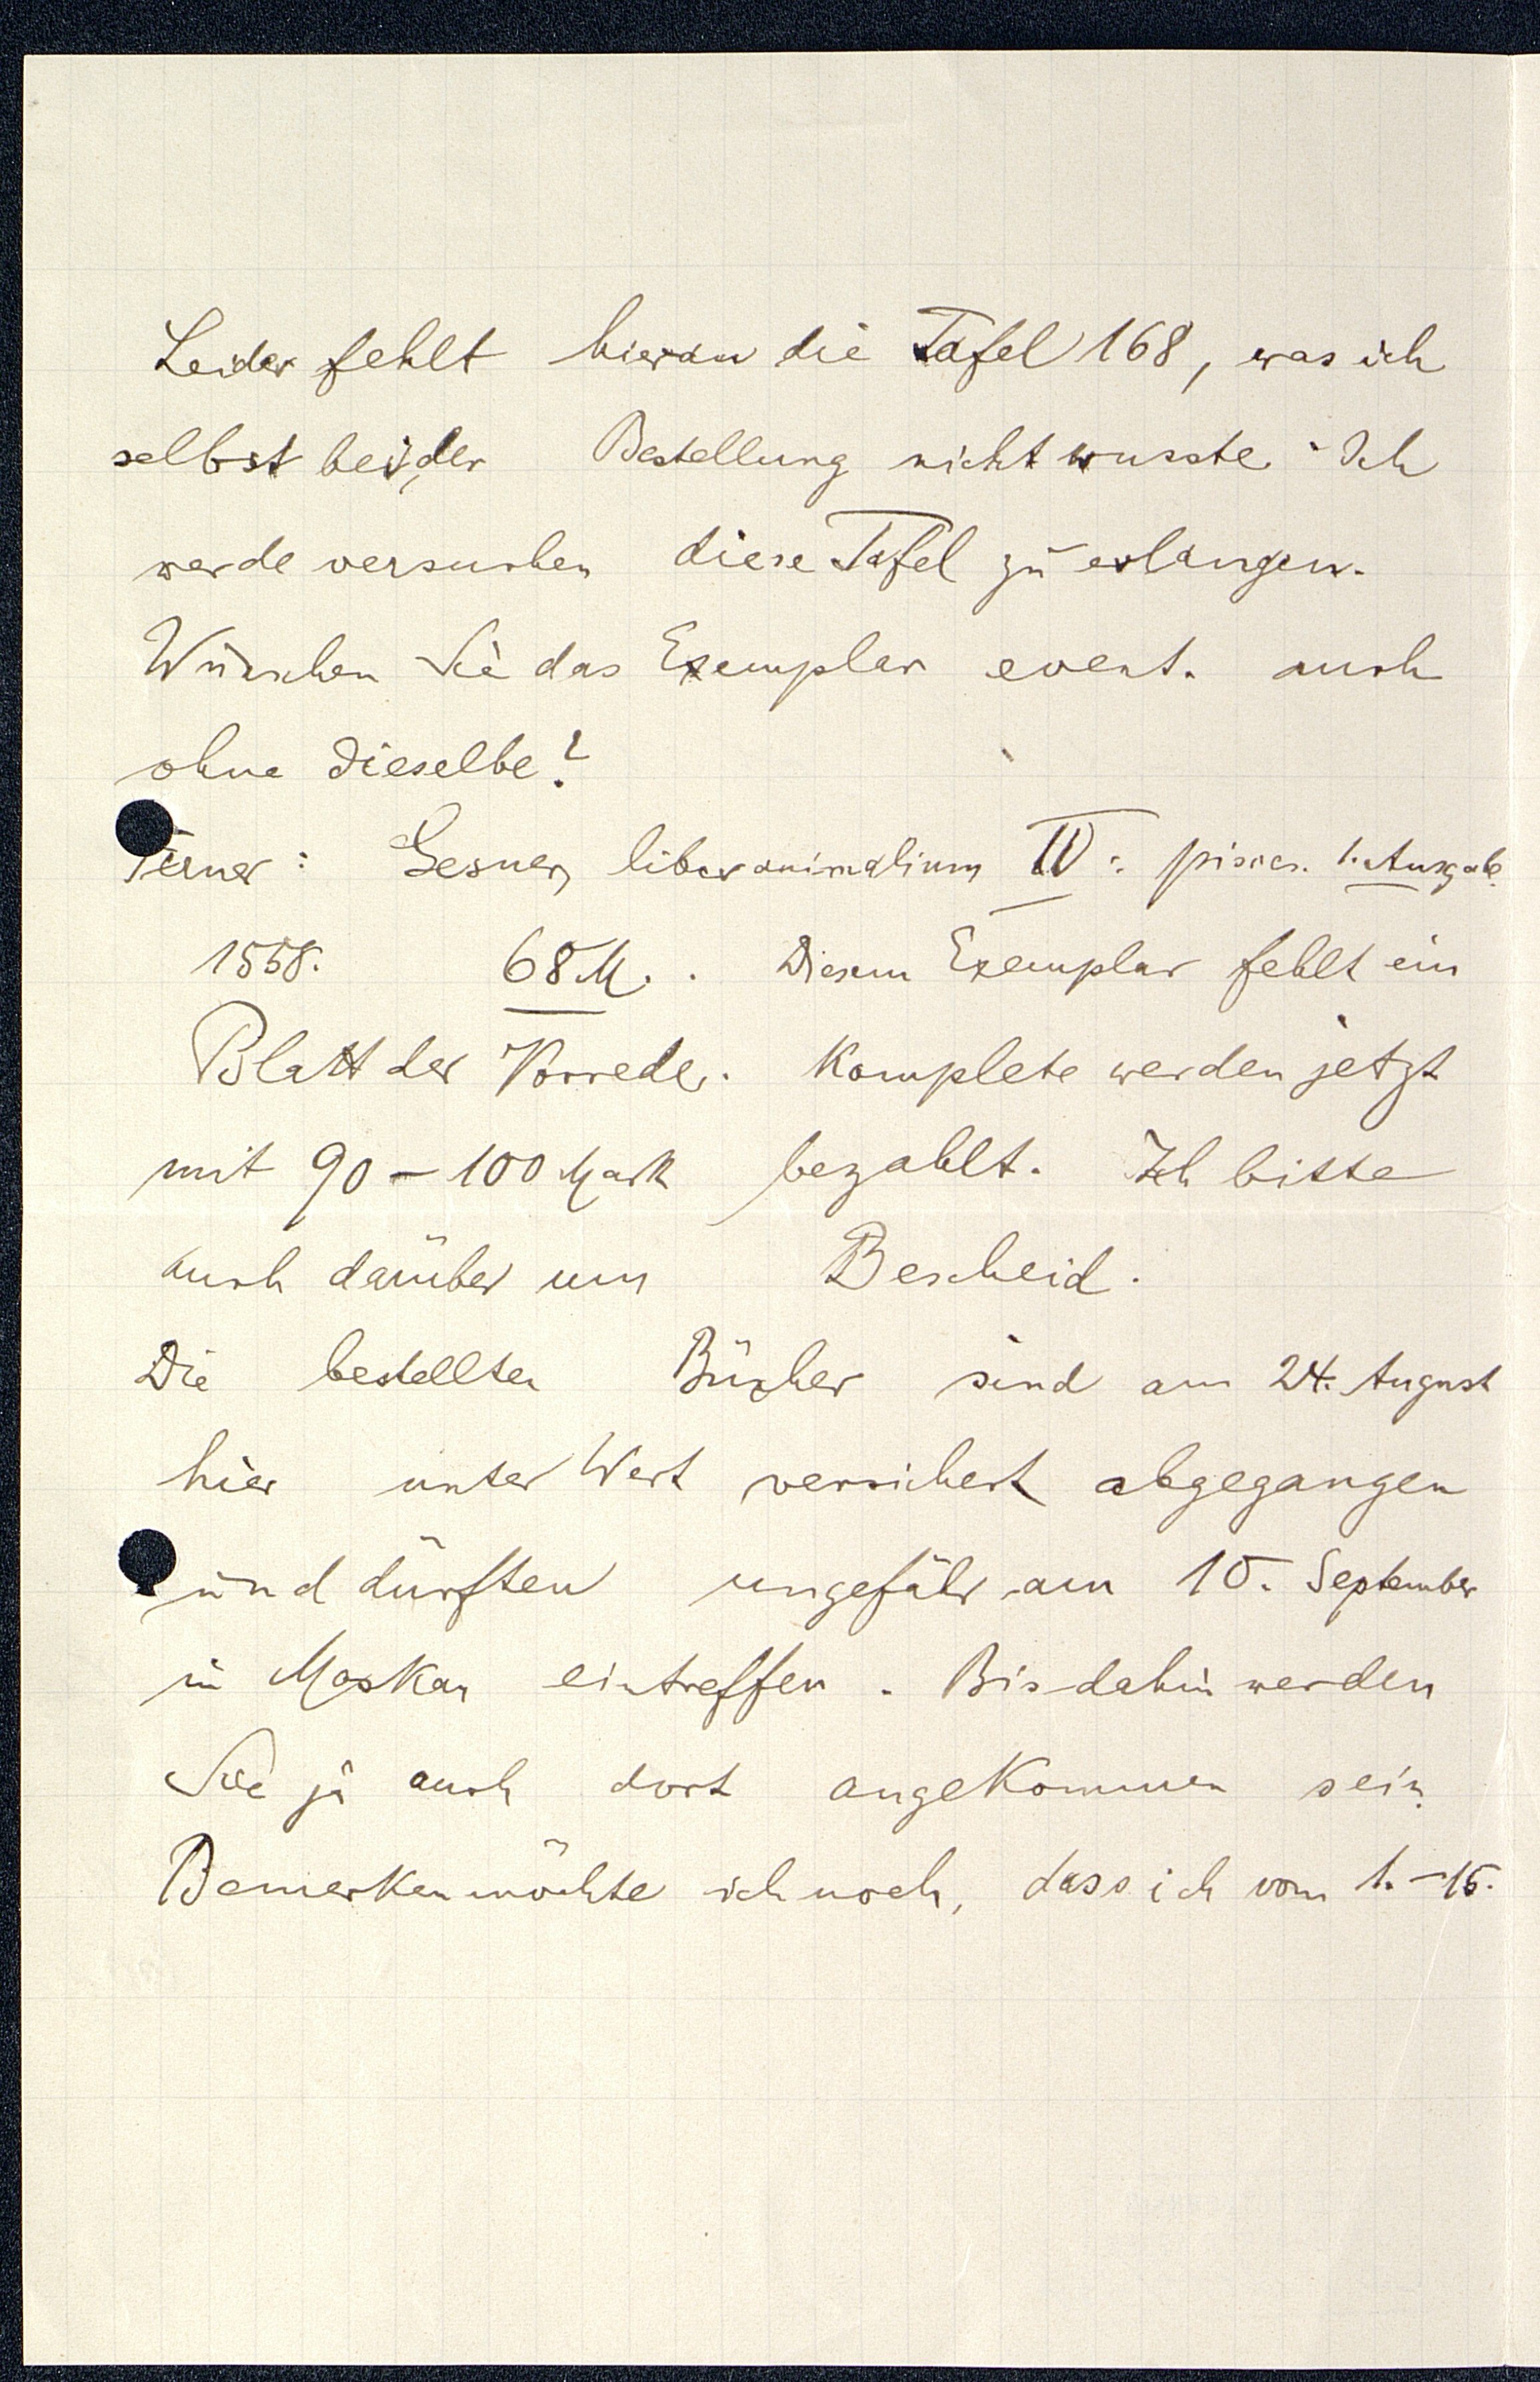 Leider fehlt hieran die Tafel 168, was ich
selbst bei der Bestellung nicht wusste. Ich
werde versuchen diese Tafel zu erlangen.
Wünschen Sie das Exemplar event. auch
ohne dieselbe?
Ferner: Gesner, liber animalium IV: pisces. 1. Ausgabe
1558. 68 M. Diesem Exemplar fehlt ein
Blatt der Vorrede. Komplete werden jetzt
mit 90 – 100 Mark bezahlt. Ich bitte
auch darüber um Bescheid.
Die bestellten Bücher sind am 24. August
hier unter Wert versichert abgegangen
und dürften ungefähr am 10. September
in Moskau eintreffen. Bis dahin werden
Sie ja auch dort angekommen sein.
Bemerken möchte ich noch, dass ich vom 1. – 15.